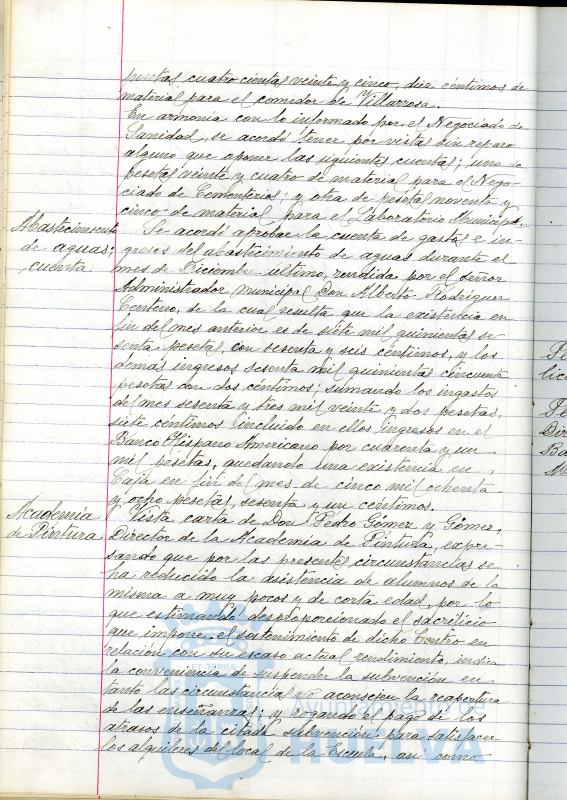 pesetas cuatrocientas veinte y cinco, diez céntimos de
material para el comedor de Villarrosa.
En armonía con lo informado por el Negociado de
Sanidad, se acordó tener por vistas sin reparo
alguno que oponer las siguientes cuentas; una de
pesetas veinte y cuatro de material para el Nego-
ciado de Cementerios; y otra de pesetas noventa y
cinco de material para el Laboratorio Municipal.
Abastecimiento
de aguas;
cuenta
Se acordó aprobar la cuenta de gastos e in-
gresos del abastecimiento de aguas durante el
mes de Diciembre último, rendida por el señor
Administrador municipal Don Alberto Rodriguez
Centeno, de la cual resulta que la existencia en
fin del mes anterior es de siete mil quinientas se-
senta pesetas, con sesenta y seis céntimos, y los
demás ingresos sesenta mil quinientas cincuenta
pesetas con dos céntimos; sumando los ingastos
del mes sesenta y tres mil veinte y dos pesetas,
siete céntimos incluido en ellos ingresos en el
Banco Hispano Americano por cuarenta y un
mil pesetas, quedando una existencia en
Caja en fin del mes de cinco mil ochenta
y ocho pesetas sesenta y un céntimos.
Academia
de Pintura
Vista carta de Don Pedro Gómez y Gómez,
Director de la Academia de Pintura, expre-
sando que por las presentes circunstancias se
ha reducido la asistencia de alumnos de la
misma a muy pocos y de corta edad, por lo
que estimando desproporcionado el sacrificio
que impone el sostenimiento de dicho Centro en
relación con su escaso actual rendimiento, indica
la conveniencia de suspender la subvención en
tanto las circunstancias no aconsejen la reapertura
de las enseñanzas; y rogando el pago de los
atrasos de la citada subvención para satisfacer
los alquileres del local de la Escuela, así como
Ayuntamiento de
HUELVA